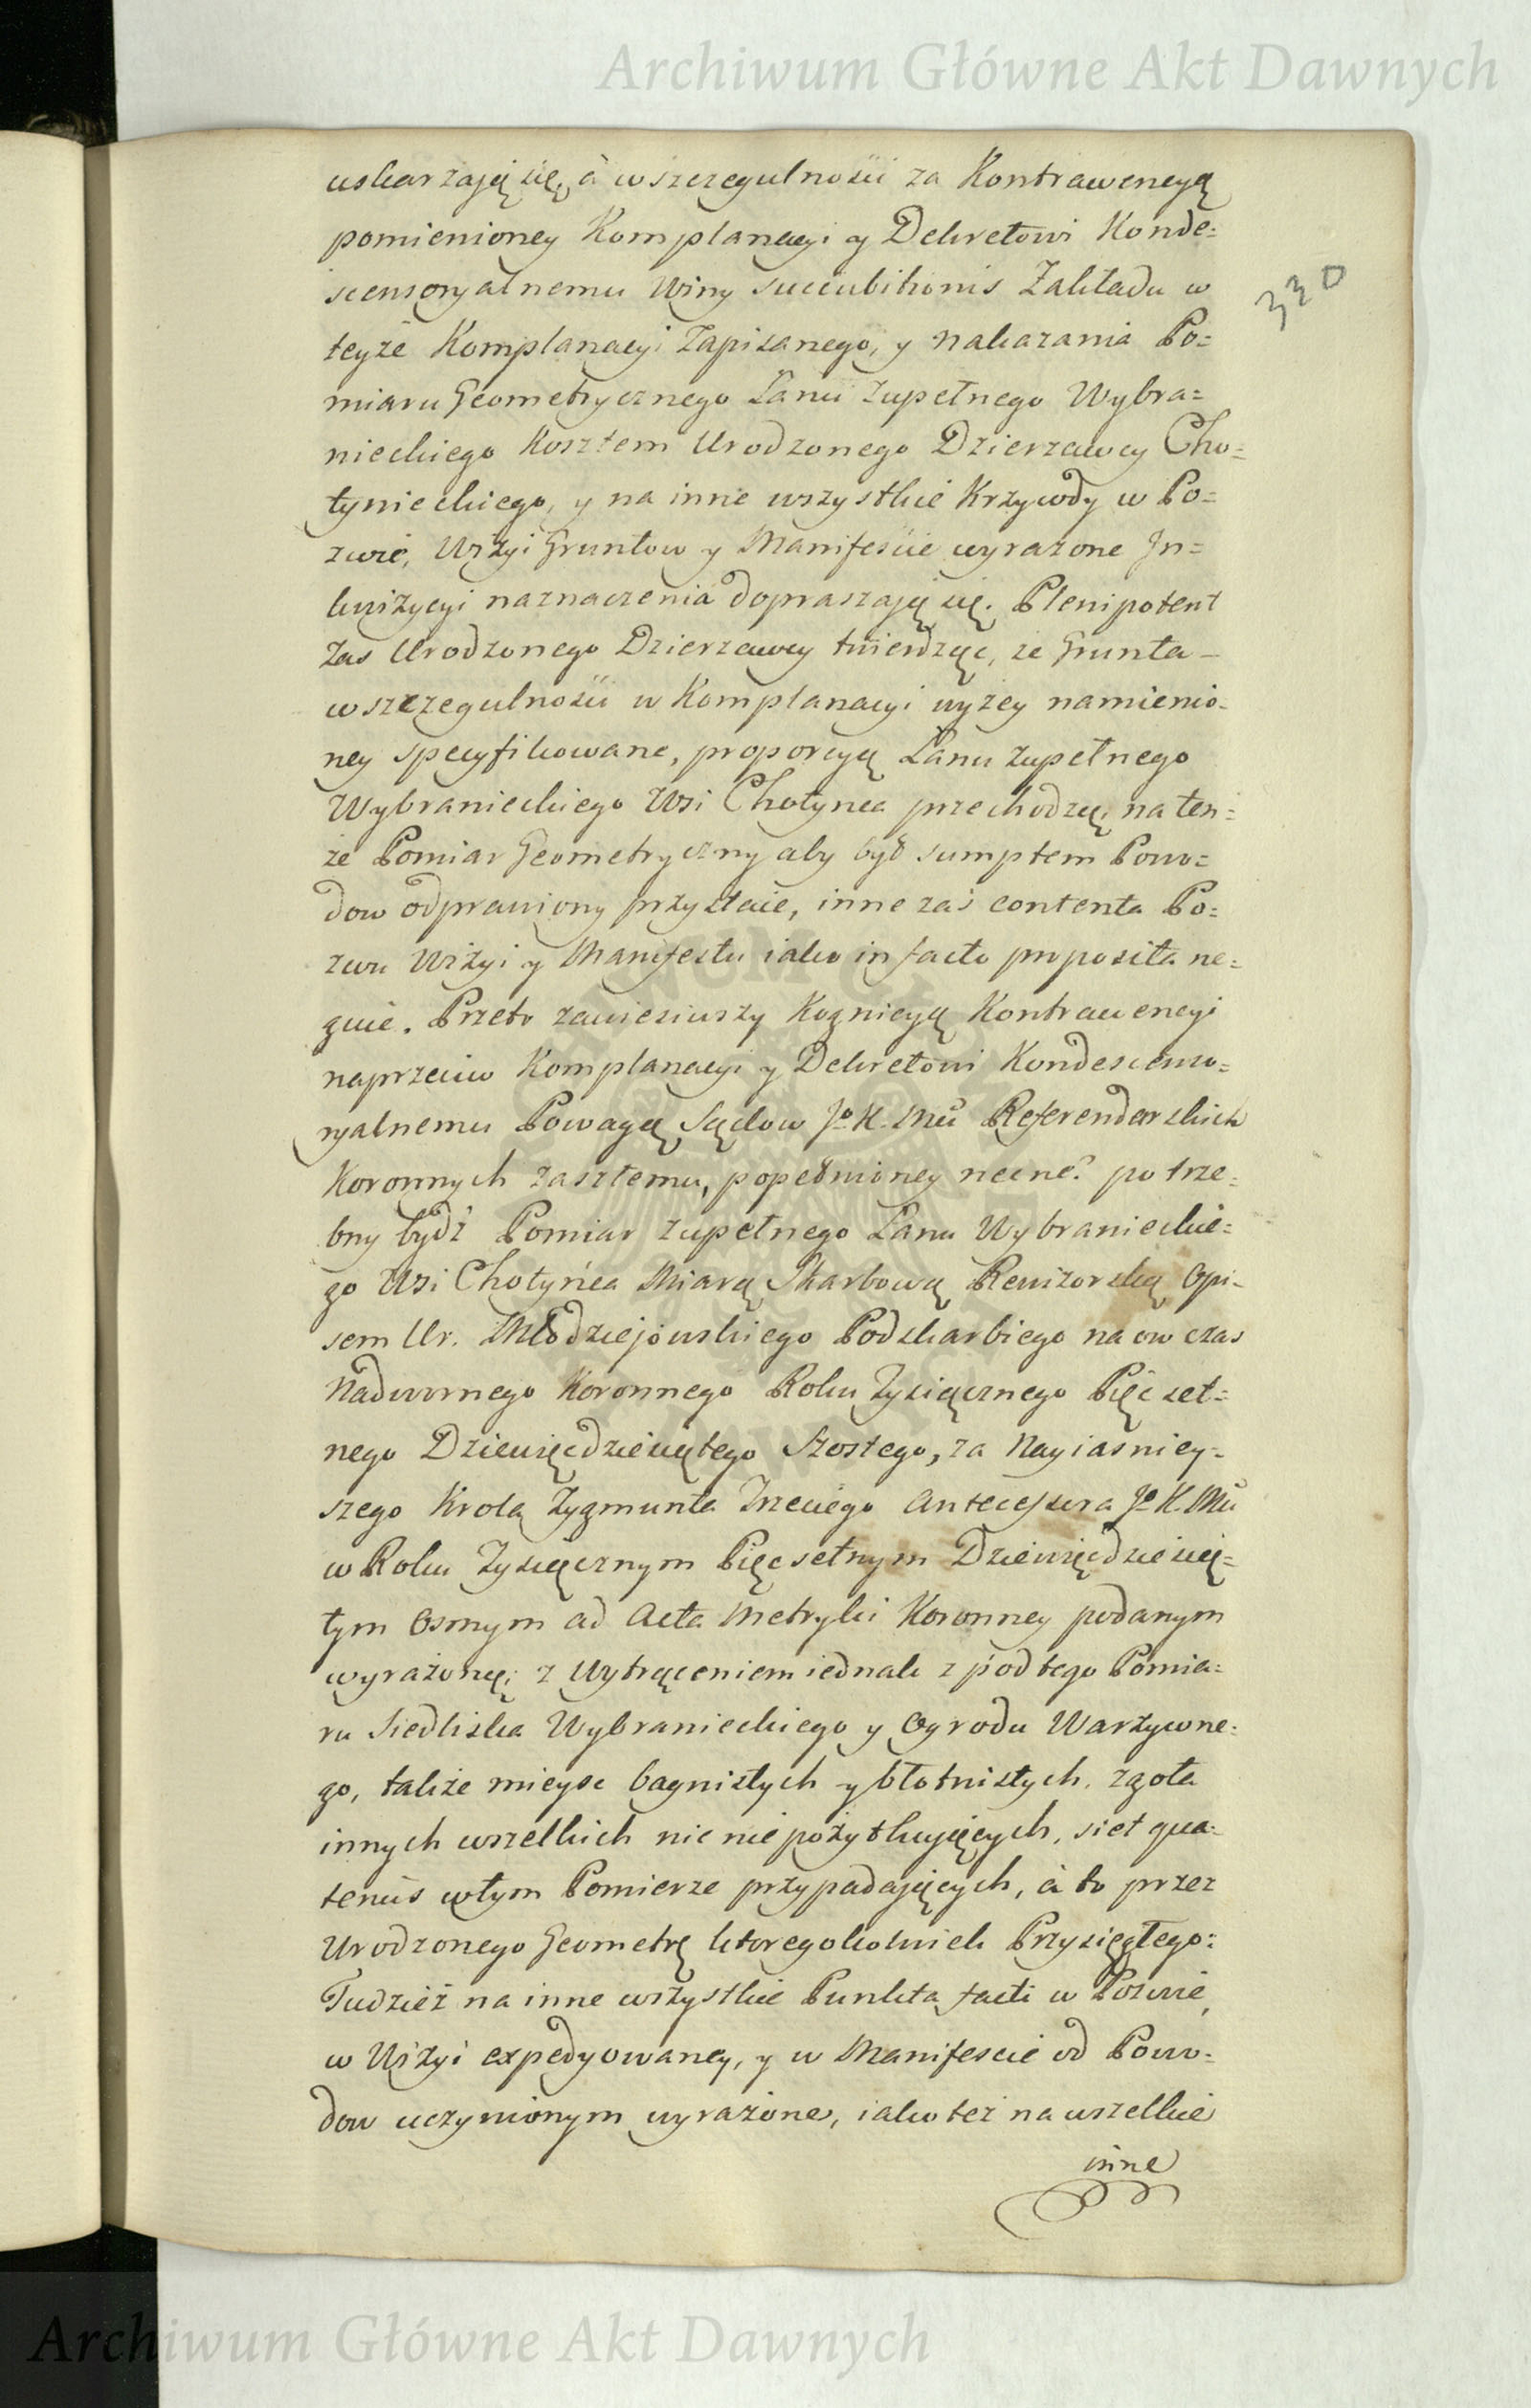 Archiwum Główne Akt Dawnych
330
uskarzają się, à wszczegulności za Kontrawencyą
pomienioney Komplanacyi y Dekretowi Konde=
scensoryalnemu Winy succubitionis Zakładu w
teyże Komplanacyi Zapisanego, y nakazania Po=
miaru Geometrycznego Łanu zupełnego Wybra=
nieckiego Kosztem Urodzonego Dzierzawcy Cho=
tynieckiego, y na inne wszystkie Krzywdy w Po=
zwie, Wizyi Gruntow y Manifeście wyrazone In=
kwizycyi naznaczenia dopraszaią się. Plenipotent
Zas Urodzonego Dzierzawcy twierdząc, ze Grunta
wszczegulności w Komplanacyi wyzey namienio=
ney specyfikowane, proporcyą Łanu zupełnego
Wybranieckiego Wsi Chotynca przechodzą, na ten=
że Pomiar Geometryczny aby był sumptem Powo=
dow odprawiony przystaie, inne zaś contenta Po=
zwu Wizyi y Manifestu iako in facto proposita ne=
guie. Przeto zawiesiwszy Kognicyą Kontrawencyi
naprzeciw Komplanacyi y Dekretowi Kondescenso=
ryalnemu Powagą Sądow Jo K. Mci Referendarskich
Koronnych zaszłemu, popełnioney necne? potrze=
bny bydź Pomiar zupełnego Łanu Wybranieckie=
go Wsi Chotyńca Miarą Skarbową Rewizorską Opi=
sem Ur. Młodziejowskiego Podskarbiego na ow czas
Nadwornego Koronnego Roku Tysiącznego Pięćset=
nego Dziewięćdziesiątego Szostego, za Nayiasniey=
szego Krola Zygmunta Trzeciego Antecessora Jo K. Mci
w Roku Tysiącznym Pięcsetnym Dziewięćdziesią=
tym Osmym ad Acta Metryki Koronney podanym
wyrażoną; z Wytrąceniem iednak z pod tego Pomia=
ru Siedliska Wybranieckiego y Ogrodu Warzywne=
go, także mieysc bagnistych y błotnistych, zgoła
innych wszelkich nic nie pożytkuiących, siet qua=
tenus wtym Pomierze przypadaiących, à to przez
Urodzonego Geometrę ktoregokolwiek Przysięgłego:
Tudzież na inne wszystkie Punkta facti w Pozwie,
w Wizyi expedyowaney, y w Manifescie od Powo=
dow uczynionym wyrażone, iako też na wszelkie
inne
Archiwum Główne Akt Dawnych